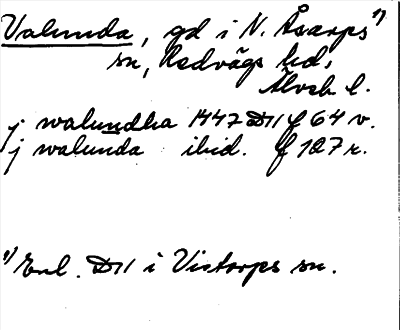 Valunda, gd i N. Åsarps 1)
sn, Redvägs hd,
Älvsb l.
j walundha 1447 D11 f 64 v.
j walunda ibid. f 127 r.
1) Enl. D11 i Vistorps sn.